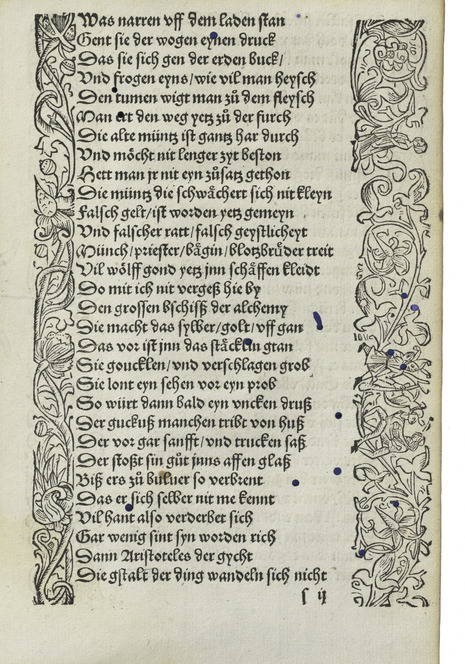 Was narren vff dem laden stan
Gent sie der wogen eynen druck
Das sie sich gen der erden buck/
Vnd frogen eyns/wie vil man heysch
Den tumen wigt man zů dem fleysch
Man ert den weg yetz zů der furch
Die alte müntz ist gantz har durch
Vnd möcht nit lenger zyt beston
Hett man jr nit eyn zůsatz gethon
Die müntz die schwåchert sich nit kleyn
Falsch gelt/ist worden yetz gemeyn
Vnd falscher ratt/falsch geystlicheyt
Münch/priester/bågin/blotzbrůder treit
Vil wölff gond yetz jnn schåffen kleidt
Do mit ich nit vergeß hie by
Den grossen bschisß der alchemy
Die macht das sylber/golt/vff gan
Das vor ist jnn das ståcklin gtan
Sie goucklen/vnd verschlagen grob
Sie lont eyn sehen vor eyn prob
So würt dann bald eyn vncken druß
Der guckuß manchen tribt von huß
Der vor gar sanfft/vnd trucken saß
Der stoßt sin gůt jnns affen glaß
Biß ers zů buluer so verbrent
Das er sich selber nit me kennt
Vil hant also verderbet sich
Gar wenig sint syn worden rich
Dann Aristoteles der gycht
Die gstalt der ding wandeln sich nicht
ſ ij